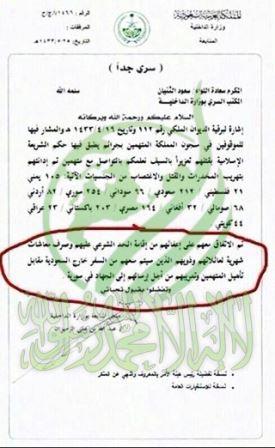 المملكة العربية السعودية
وزارة الداخلية
المتابعة
الرقم : ١١٤٦٦/ج/ح
التاريخ : ١٤٣٣/٥/٢٥
المرفقات :
( سري جداً )
المكرم سعادة اللواء / سعود الثنيان سلمه الله
المكتب السري بوزارة الداخلية
السلام عليكم ورحمة الله وبركاته
إشارة لبرقية الديوان الملكي رقم ١١٢ وتاريخ ١٤٣٣/٤/١٦ والمشار فيها
للموقوفين في سجون المملكة المتهمين بجرائم ينطبق فيها حكم الشريعة
الإسلامية بقتلهم تعزيراً بالسيف نعلمكم بالتواصل مع متهمين تم إدانتهم
بتهريب المخدرات والقتل والاغتصاب من الجنسيات الآتية: ١٠٥ يمني
٢١ فلسطيني ٢١٢ سعودي ٩٦ سوداني ٢٥٤ سوري ٨٢ أردني
٦٨ صومالي ٣٢ أفغاني ١٩٤ مصري ٢٠٣ باكستاني ٢٣ عراقي
٤٤ كويتي
تم الاتفاق معهم على إعفائهم من إقامة الحد الشرعي عليهم وصرف معاشات
شهرية لعائلاتهم وذويهم الذين سيتم منعهم من السفر خارج السعودية مقابل
تأهيل المتهمين وتدريبهم من أجل إرسالهم إلى الجهاد في سورية
وتفضلوا بقبول تحياتي
بوزارة الداخلية
عبد الله بن علي
لا إله إلا الله محمد رسول الله
نسخة لفضيلة رئيس هيئة الأمر بالمعروف والنهي عن المنكر
نسخة للاستخبارات العامة